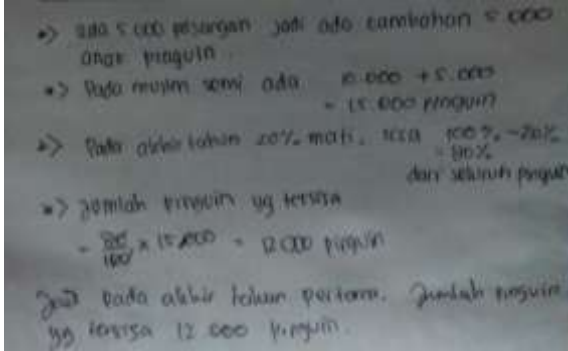 •> ada 5.000 pasangan jadi ada tambahan 5.000
anak pinguin.
•> Pada musim semi ada 10.000 + 5.000
= 15.000 pinguin
•> Pada akhir tahun 20% mati, sisa 100% - 20%
= 80%
dari seluruh pinguin
•> Jumlah pinguin yg tersisa
= 80/100 x 15.000 = 12.000 pinguin
Jadi pada akhir tahun pertama, jumlah pinguin
yg tersisa 12.000 pinguin.